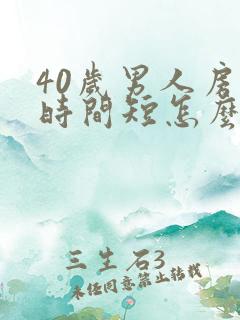 40歲男人房
時間短怎麼
三生石3
未任同意禁止轉載